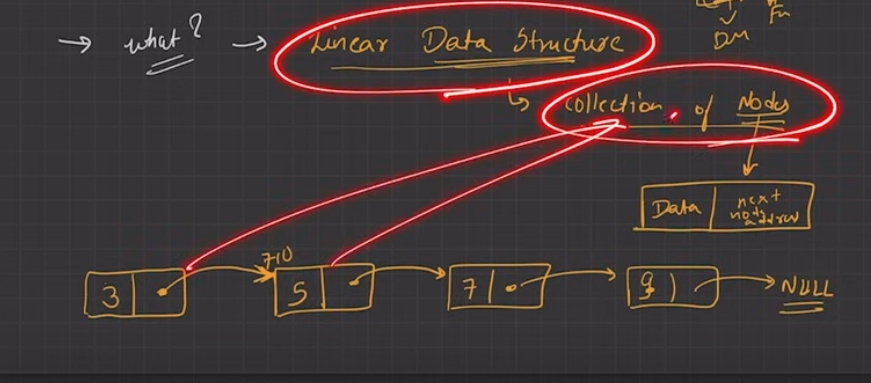 Fn
DM
→ what? → Linear Data Structure
↳ Collection of Nodes
Data | next node address
710
3 5 7 9 NULL